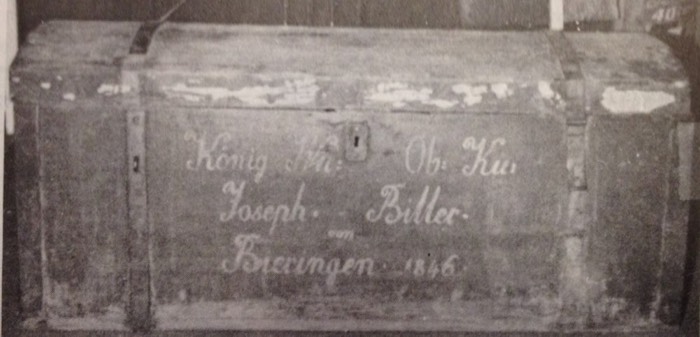 König Wü: Ob: Ku:
Joseph. Biller.
von
Bieringen. 1846.
40